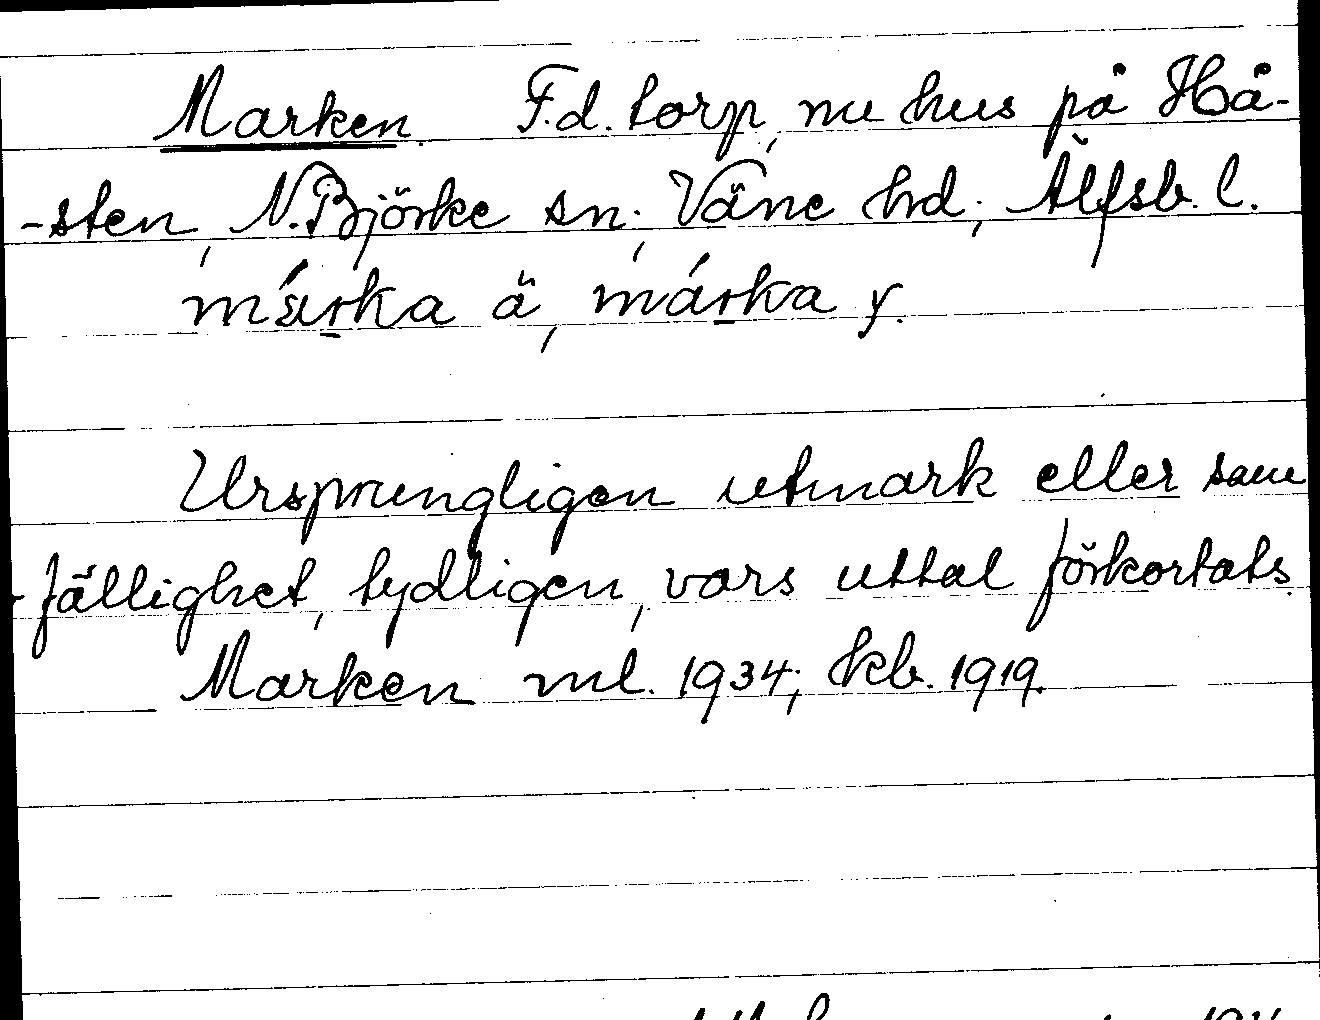 Marken. F.d. torp, nu hus på Hå-
-sten, N. Björke sn; Väne hrd; Älfsb. l.
márka ä, márka y.
Ursprungligen utmark eller sam
-fällighet, tydligen, vars uttal förkortats.
Marken ml. 1934; kb. 1919.